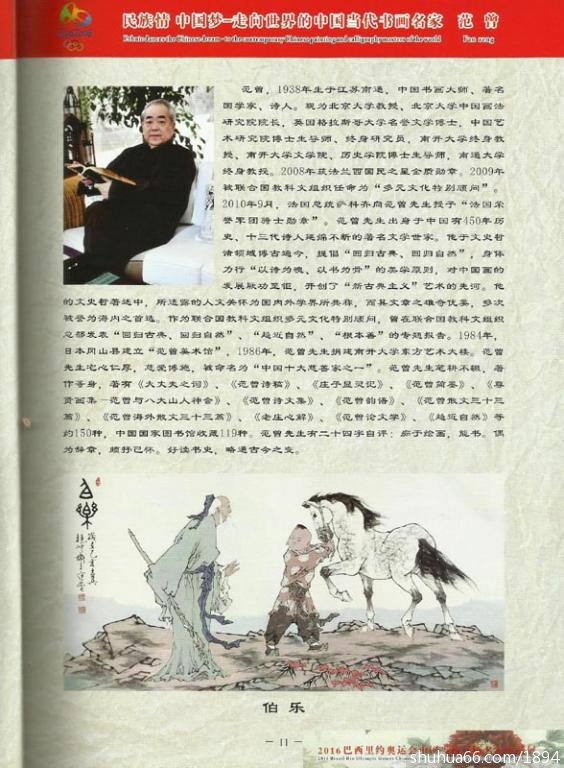 民族情 中国梦—走向世界的中国当代书画名家 范 曾
Fan zeng
范曾，1938年生于江苏南通，中国书画大师、著名
国学家、诗人。现为北京大学教授、北京大学中国画法
研究院院长，英国格拉斯哥大学名誉文学博士，中国艺
术研究院博士生导师、终身研究员，南开大学终身教
授、南开大学文学院、历史学院博士生导师，南通大学
终身教授。2008年获法兰西国民之星金质勋章。2009年
被联合国教科文组织任命为“多元文化特别顾问”。
2010年9月，法国总统萨科齐向范曾先生授予“法国荣
誉军团骑士勋章”。范曾先生出身于中国有450年历
史、十三代诗人延绵不断的著名文学世家。他于文史哲
诸领域博古通今，提倡“回归古典、回归自然”，身体
力行“以诗为魂、以书为骨”的美学原则，对中国画的
发展厥功至钜，开创了“新古典主义”艺术的先河。他
的文史哲著述中，所透露的人文关怀为国内外学界所共称，而其文章之雄奇优美，多次
被誉为海内之首选。作为联合国教科文组织多元文化特别顾问，曾在联合国教科文组织
总部发表“回归古典、回归自然”、“趋近自然”、“根本善”的专题报告。1984年，
日本冈山县建立“范曾美术馆”，1986年，范曾先生捐建南开大学东方艺术大楼。范曾
先生宅心仁厚，慈爱博施，被命名为“中国十大慈善家之一”。范曾先生笔耕不辍，著
作等身，著有《大丈夫之词》、《范曾诗稿》、《庄子显灵记》、《范曾简墨》、《尊
贤画集—范曾与八大山人神会》、《范曾诗文集》、《范曾韵语》、《范曾散文三十三
篇》、《范曾海外散文三十三篇》、《老庄心解》、《范曾论文学》、《趋近自然》等
约150种，中国国家图书馆收藏119种。范曾先生有二十四字自评：痴于绘画，能书。偶
为辞章，颇抒己怀。好读书史，略通古今之变。
伯乐
— 11 —
2016巴西里约奥运会中
shuhua66.com/1894